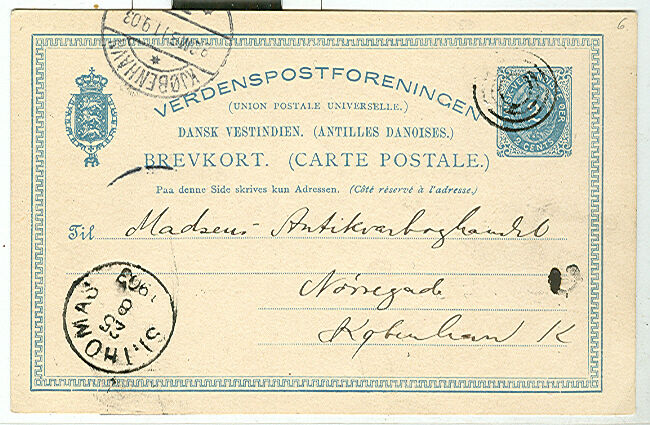 6
KJØBENHAVN 11.9.03
VERDENSPOSTFORENINGEN
(UNION POSTALE UNIVERSELLE.)
DANSK VESTINDIEN. (ANTILLES DANOISES.)
BREVKORT. (CARTE POSTALE.)
Paa denne Side skrives kun Adressen. (Côté réservé à l'adresse.)
CENTS
Til Madsens Antikvarboghandel
Nørregade
København K
ST: THOMAS 25 8 1903